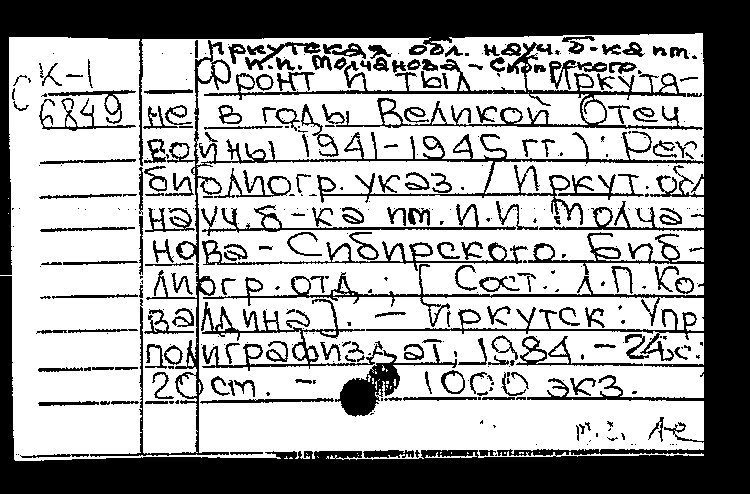 Иркутская обл. науч. б-ка им.
И.И. Молчанова-Сибирского
С К-1
6849
Фронт и тыл. (Иркутя-
не в годы Великой Отеч
войны 1941-1945 гг.): Рек.
библиогр. указ. / Иркут. обл
науч. б-ка им. И.И. Молча-
нова-Сибирского. Биб-
лиогр. отд.; [Сост.: Л.П. Ко-
валдина]. - Иркутск: Упр
полиграфиздат, 1984. - 24с.
20 cm. - 1000 экз.